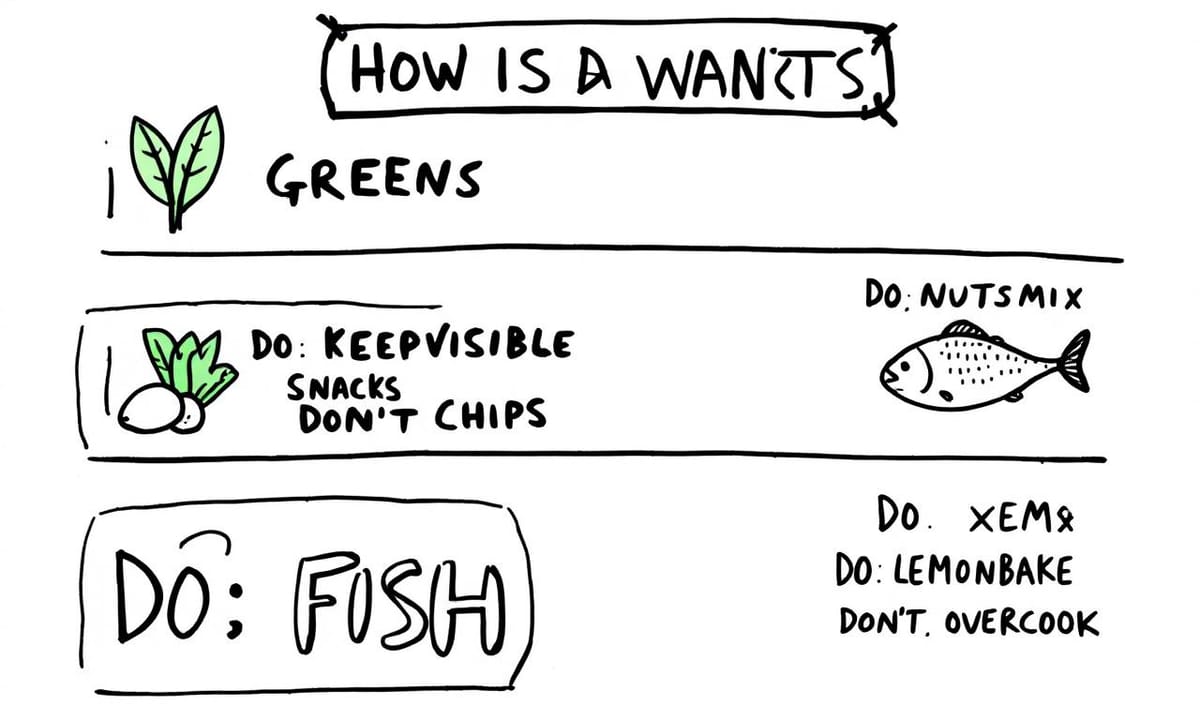 HOW IS A
GREENS
DO: NUTSMIX
DO: KEEPVISIBLE
SNACKS
DON'T CHIPS
DO; FISH
DO.
DO: LEMONBAKE
DON'T. OVERCOOK